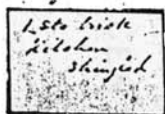 1 Sto brick
kitchen
shingled